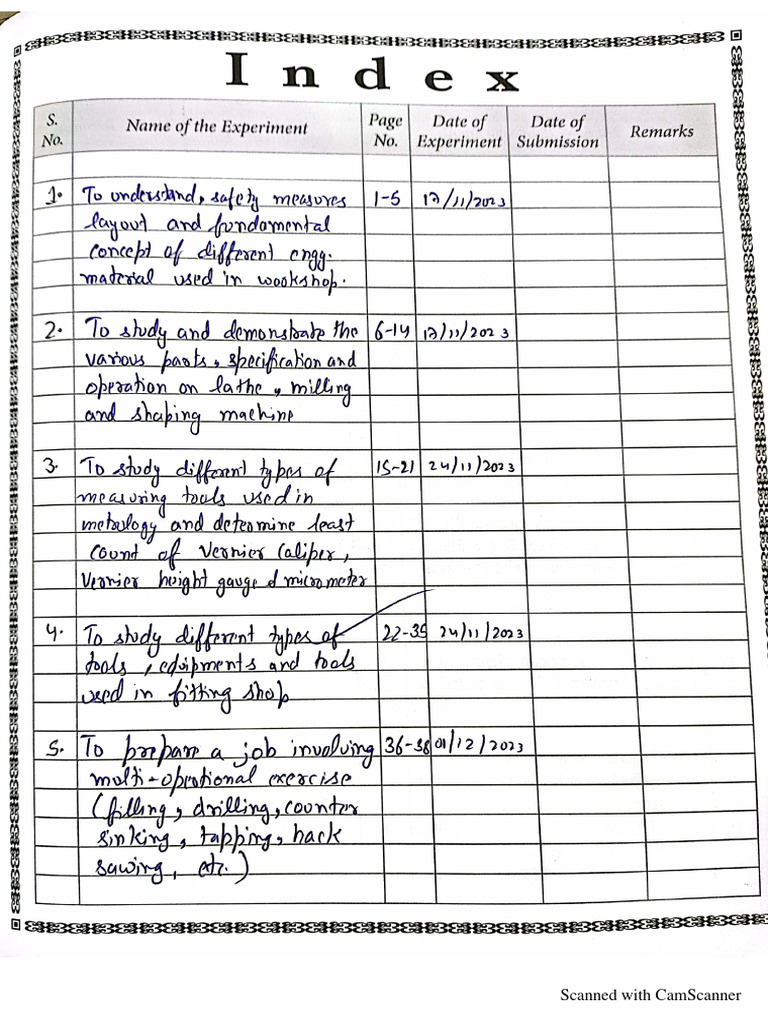 Index
S. No. Name of the Experiment Page No. Date of Experiment Date of Submission Remarks
1. To understand, safety measures 1-5 17/11/2023
layout and fundamental
concept of different engg.
material used in wookshop.
2. To study and demonstrate the 6-14 17/11/2023
various parts, specification and
operation on lathe, milling
and shaping machine
3. To study different types of 15-21 24/11/2023
measuring tools used in
metrology and determine least
count of Vernier Caliper,
Vernier height gauge & micrometer
4. To study different types of 22-35 24/11/2023
tools, equipments and tools
used in fitting shop
5. To prepare a job involving 36-38 01/12/2023
multi-oprational exercise
(filling, drilling, counter
sinking, tapping, hack
sawing, etc.)
Scanned with CamScanner